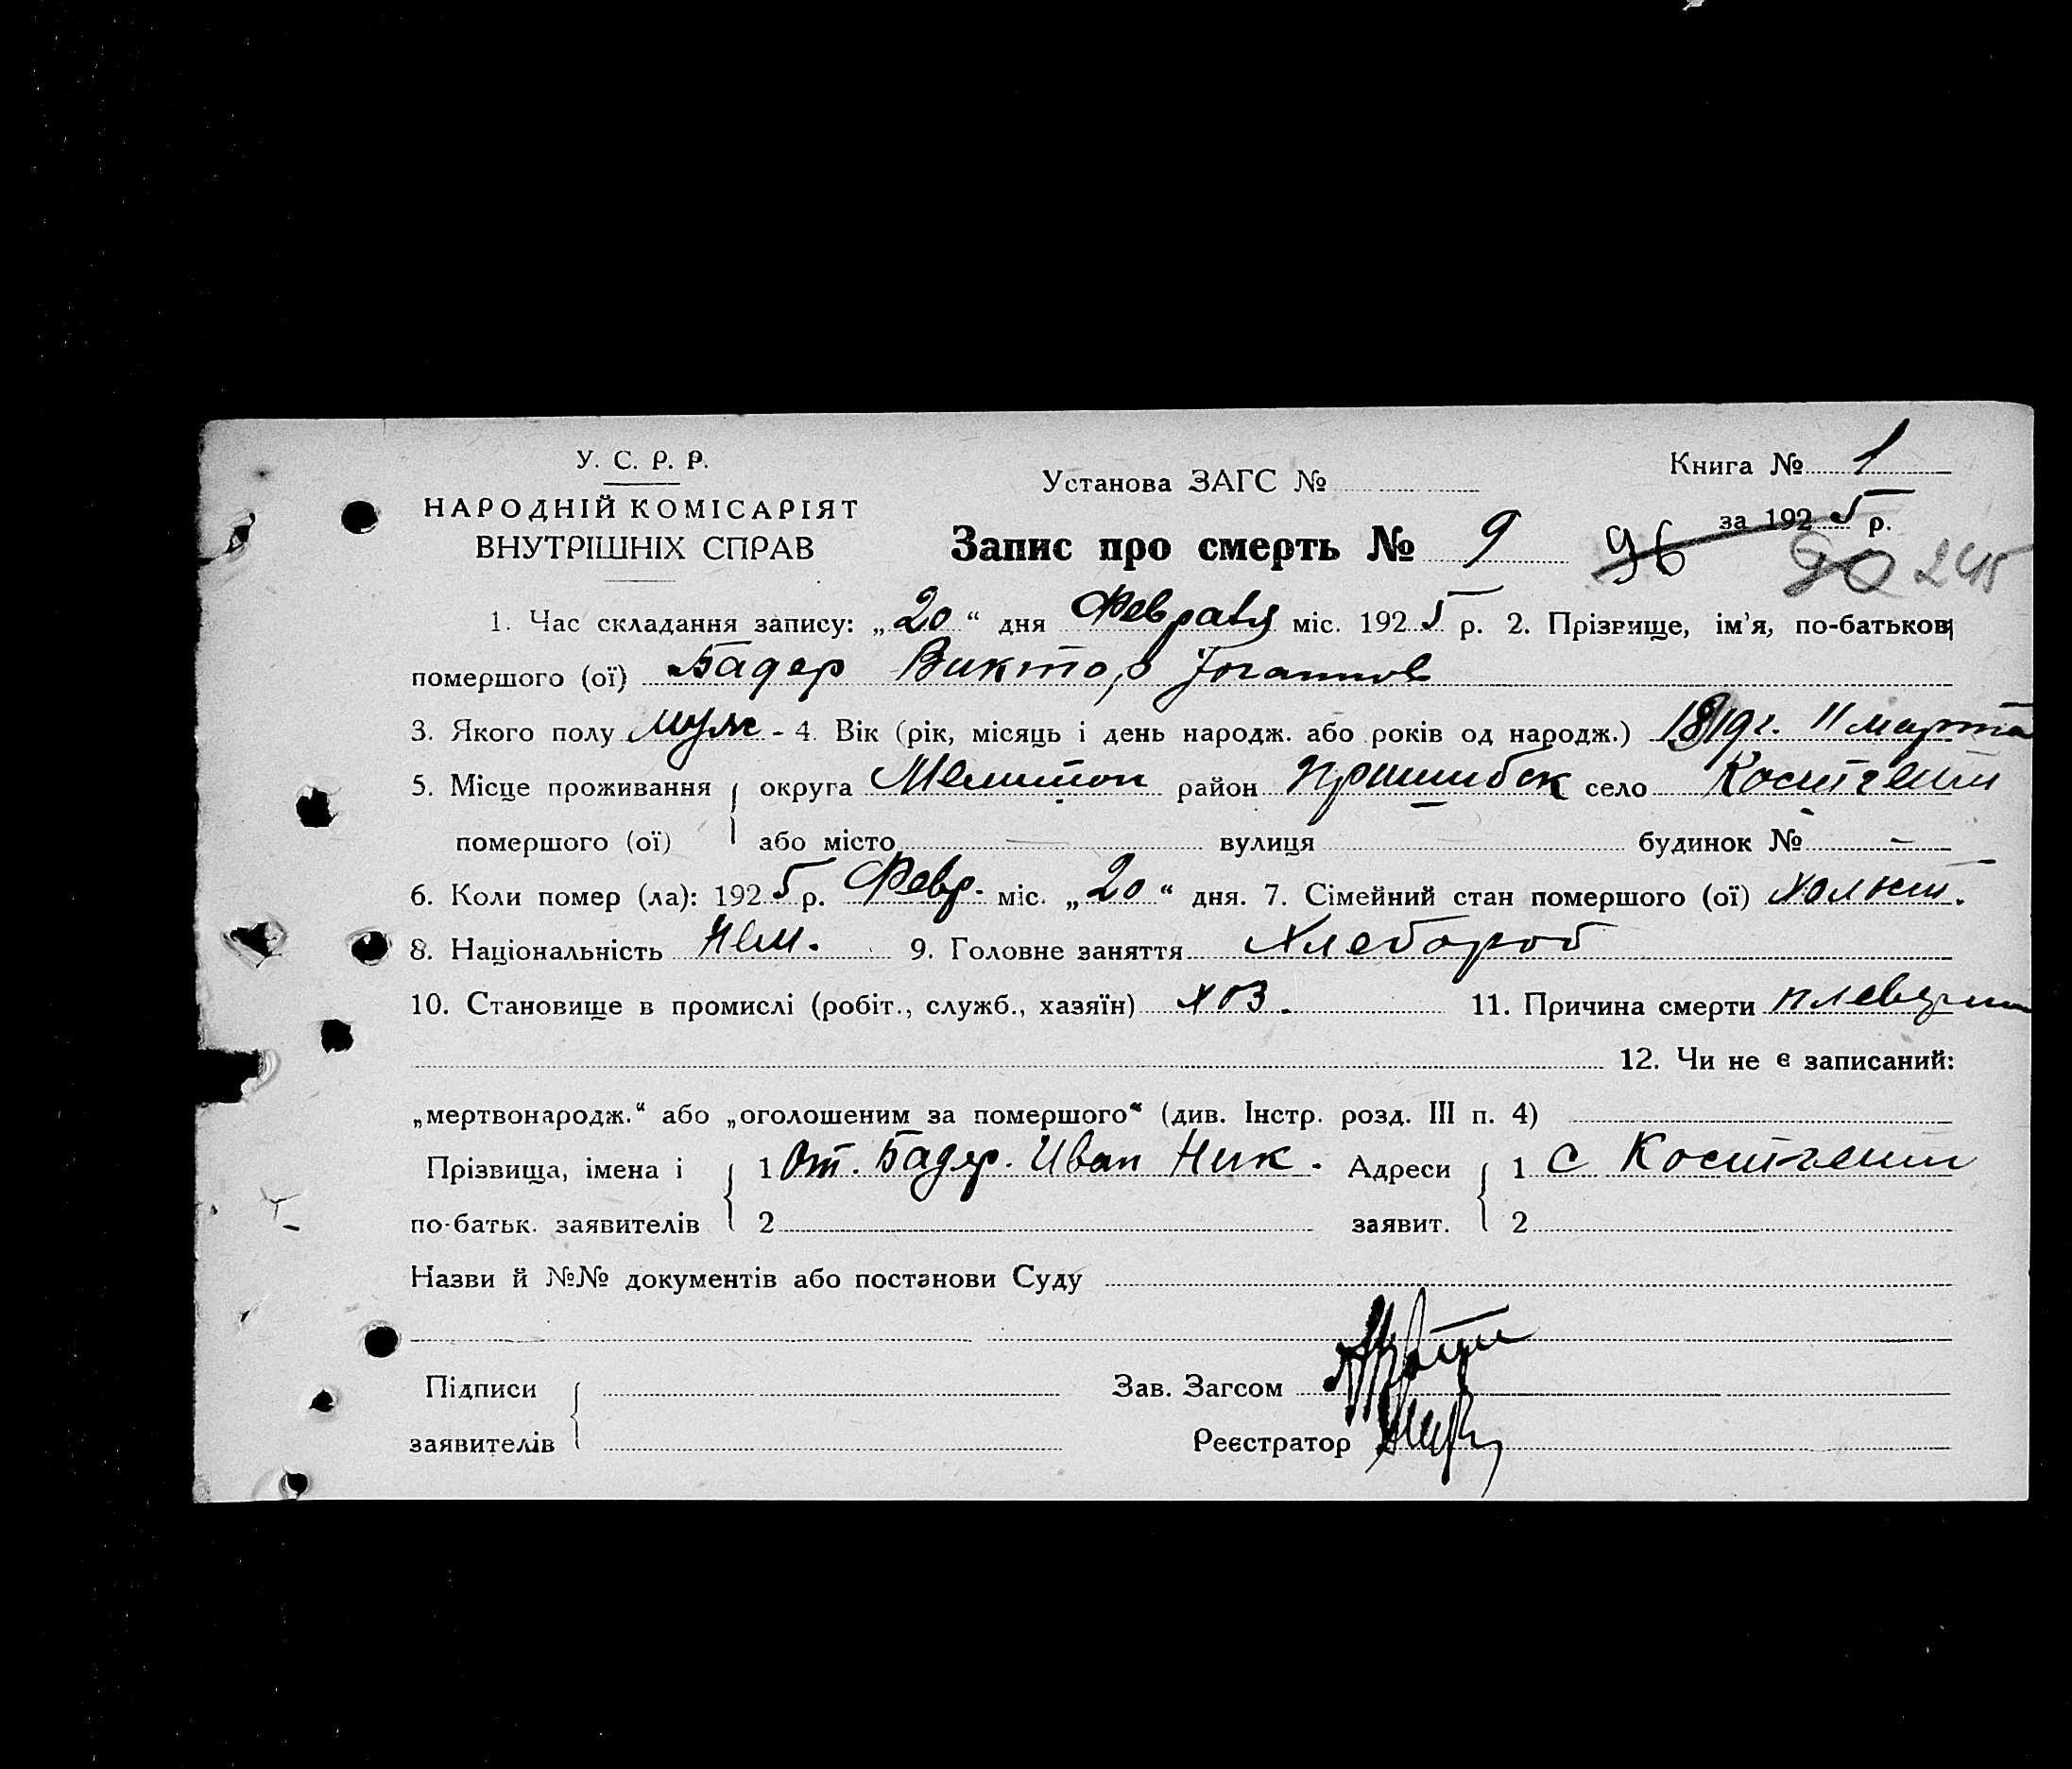 У. С. Р. Р.
НАРОДНІЙ КОМІСАРІЯТ
ВНУТРІШНІХ СПРАВ
Установа ЗАГС №
Книга № 1
за 1925 р.
Запис про смерть № 9 96 90 245
1. Час складання запису: „20“ дня Февраля міс. 1925 р. 2. Прізвище, ім'я, по-батькові
помершого (ої) Бадер Виктор Иоганнов
3. Якого полу муж - 4. Вік (рік, місяць і день народж. або років од народж.) 1919 г. 11 марта
5. Місце проживання округа Мелитоп район Пришибск село Костгейм
помершого (ої) або місто — вулиця будинок № —
6. Коли помер (ла): 1925 р. Февр. міс. „20“ дня. 7. Сімейний стан помершого (ої) холост.
8. Національність Нем. 9. Головне заняття Хлебороб
10. Становище в промислі (робіт., служб., хазяїн) хоз. 11. Причина смерти плеврит
12. Чи не є записаний:
„мертвонародж.“ або „оголошеним за помершого“ (див. Інстр. розд. III п. 4)
Прізвища, імена і 1 От. Бадер. Иван Ник. Адреси 1 с Костгейм
по-батьк. заявителів 2 заявит. 2
Назви й №№ документів або постанови Суду
Підписи Зав. Загсом
заявителів Реєстратор